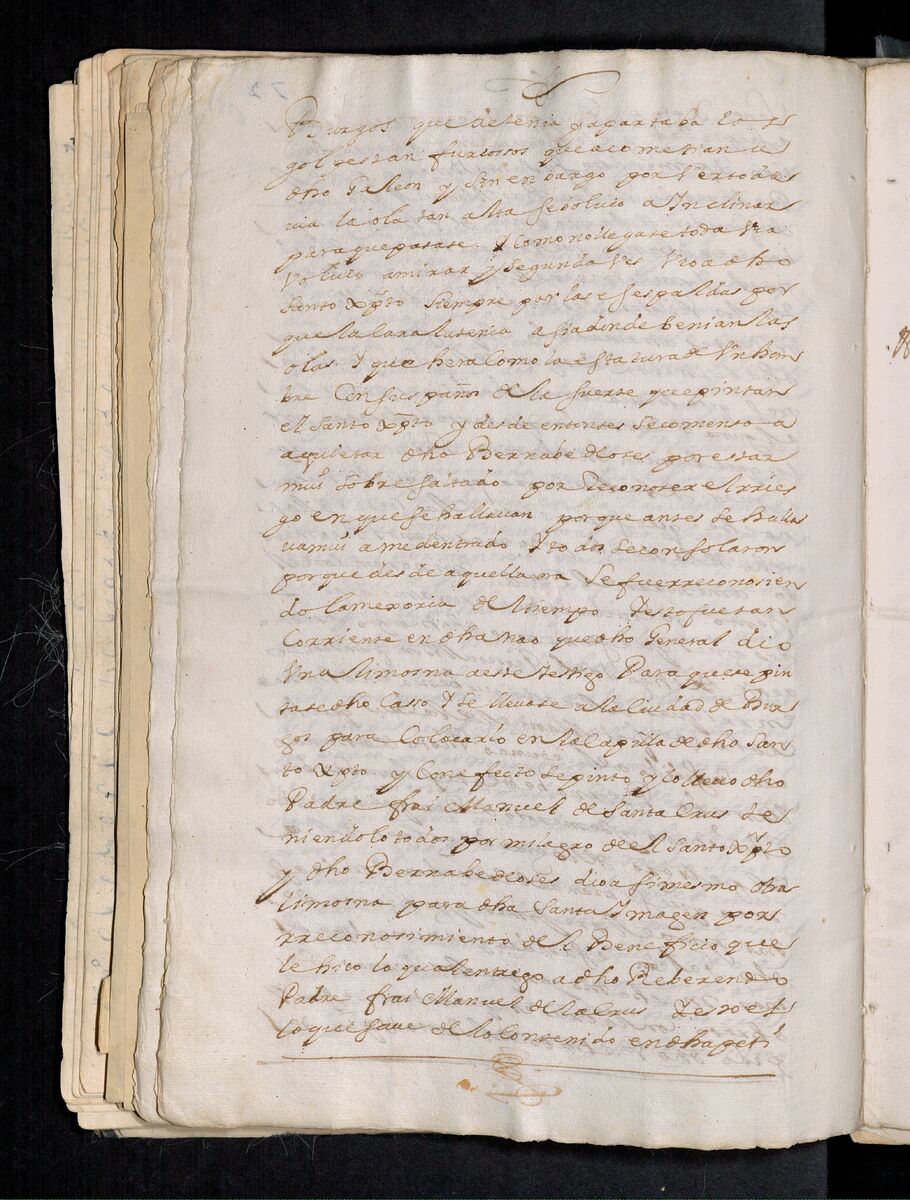 Burgos que detenia y apartaba los
golpes tan furiossos que acometian a
dho Galeon y sin enbargo por ver toda
via la ola tan alta se bolvio a Inclinar
para que pasase. Y como no llegase toda via
Volvio amirar y segunda ves vio a dho
Santo Xpto siempre por las espaldas por
que la cara la tenia asia dinde benian las
olas Y que hera como la estatura de Un hon
bre Con sus paños de la suerte que pintan
el Santo Xpto y desde entonses se comenso a
aquietar dho Bernabe de oses por estar
mui sobresaltado por Reconoser el rries
go en que se hallavan porque antes se halla
va mui amedentrado Y todos se consolaron
porque desde aquella ora se fue rreconosien
do la mexoria del tiempo Y esto fue tan
Corriente en dha nao que dho General dio
Vna limosna a este testigo Para que se pin
tase dho Casso Y se llevase a la Ciudad de Bur
gos para Colocarlo en la Capilla de dho San
to Xpto y Con efecto se pinto y lo llevo dho
Padre frai Manuel de Santa Crus te
niendolo todos por milagro de el Santo Xpto
y dho Bernabe de oses dio asimesmo otra
limosna para dha Santa Ymagen por
rreconosimiento del Beneficio que
le hiso lo qual entrego a dho Reberendo
Padre frai Manuel de la Crus Y esto es
lo que save de lo Contenido en dha peti